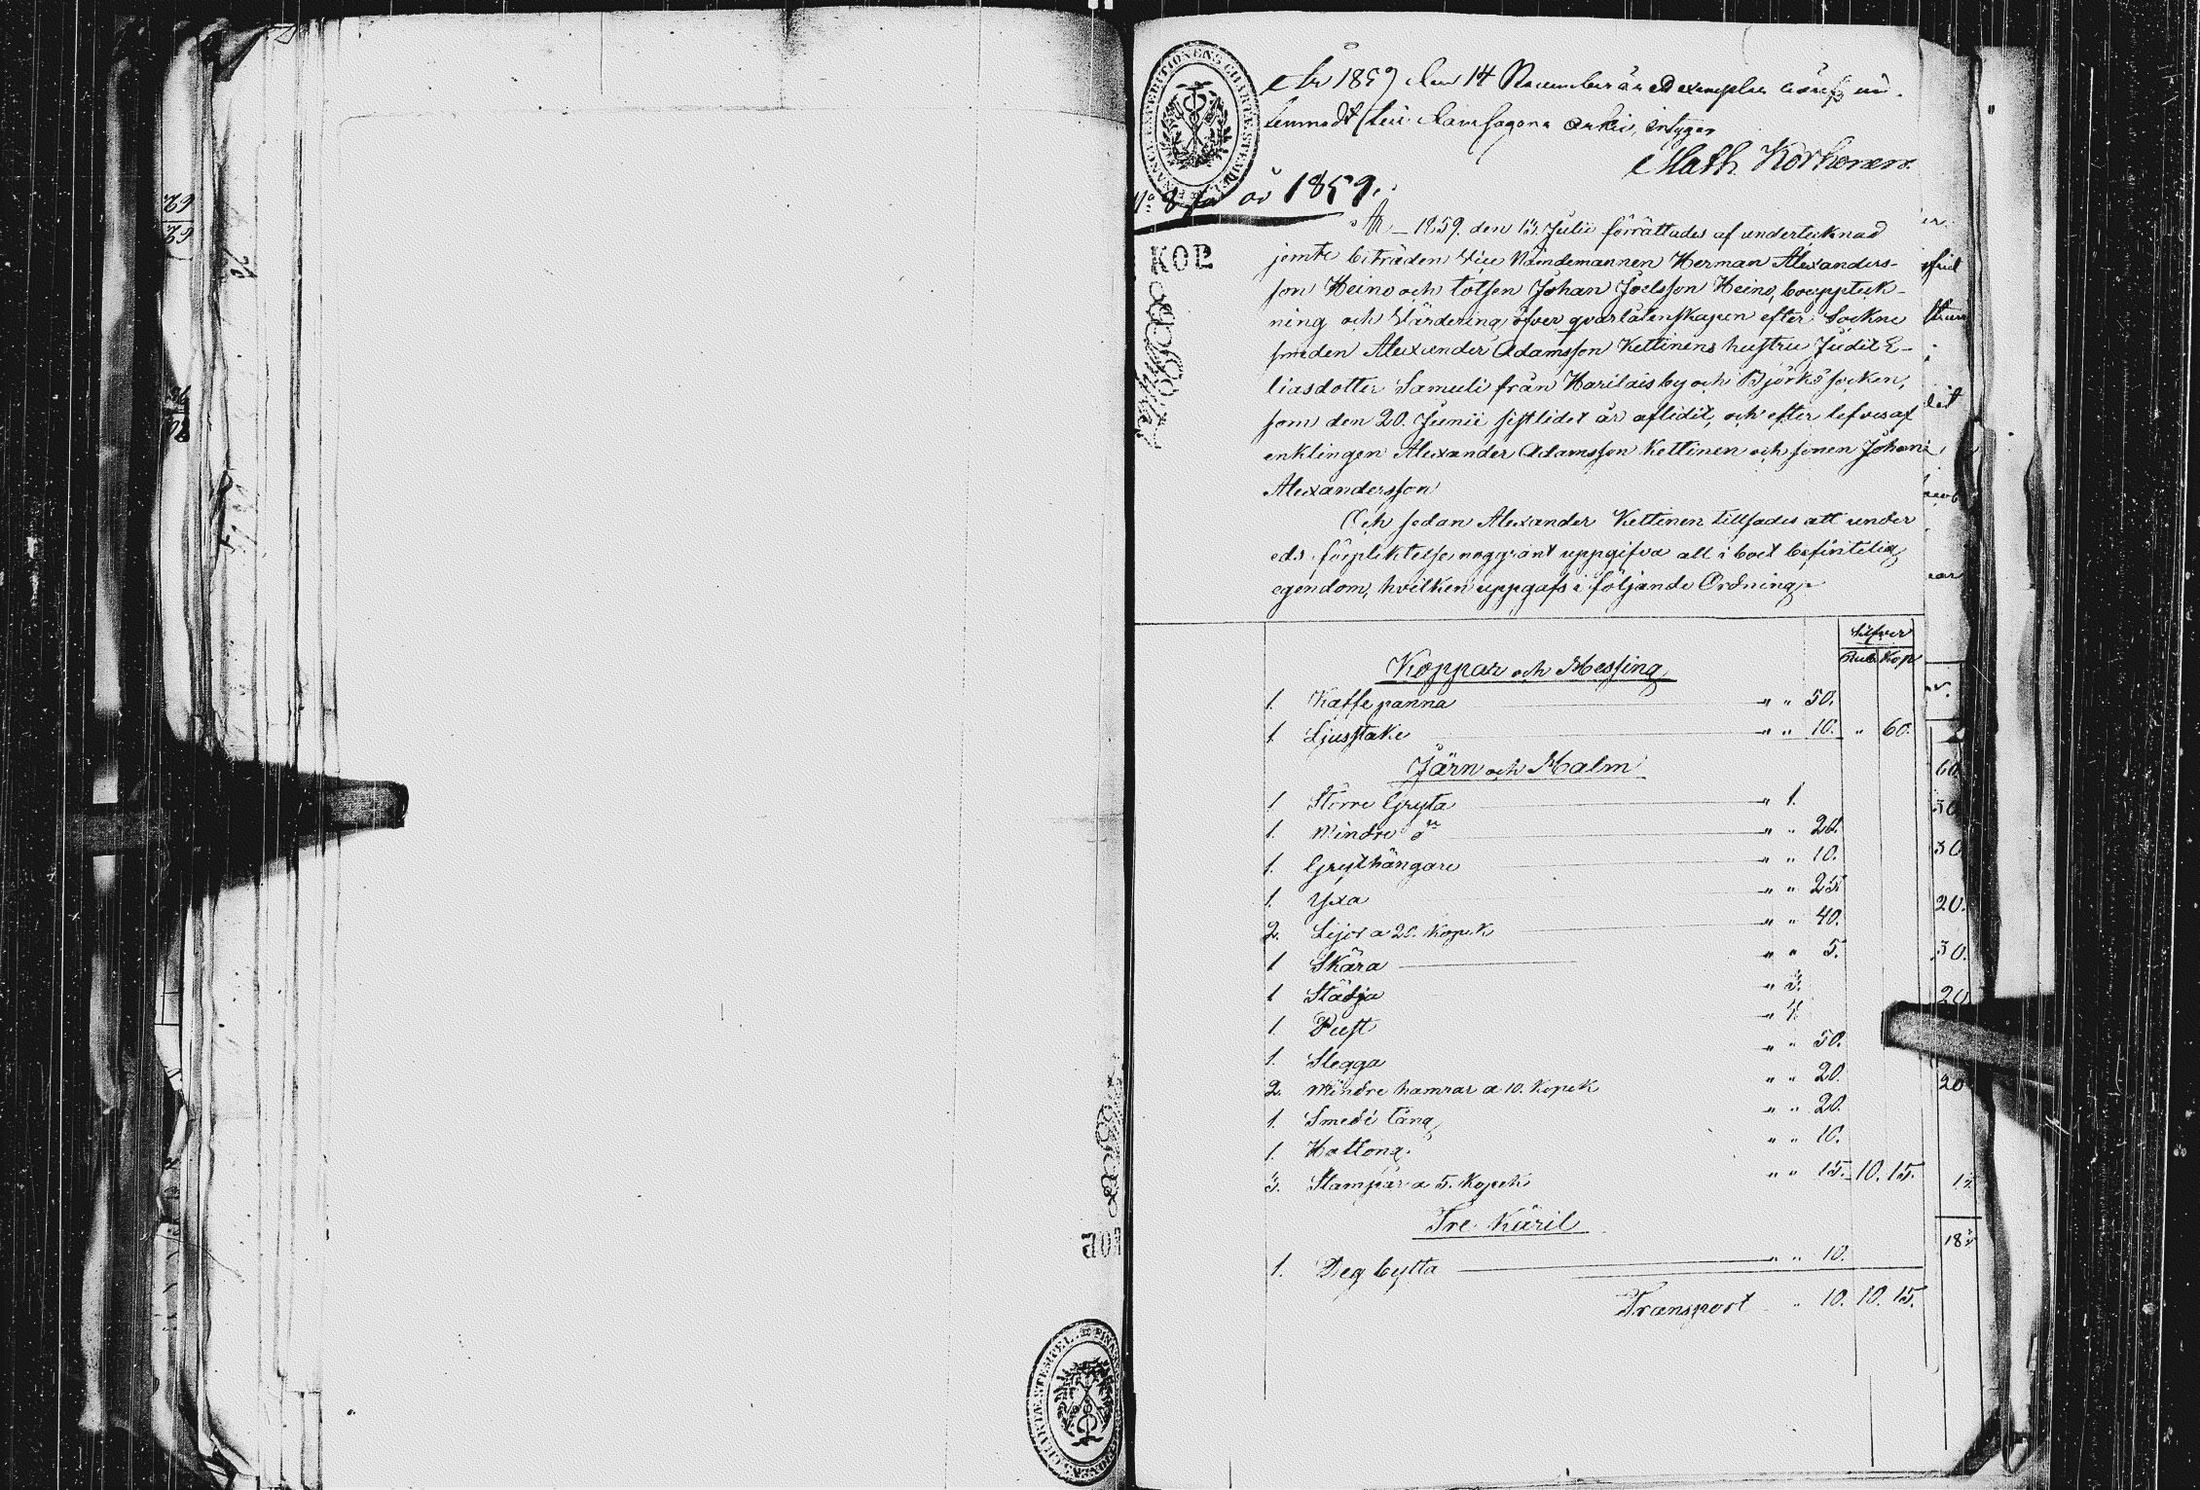 År 1859 den 14 November är ett exemplar häraf in-
lemnadt till Domsagans Arkiv, intygar
Math Korhonen.
No 8 för år 1859.
KOP.
År 1859. den 15. Julii förrättades af undertecknad
jemte biträden Vice Nämndemannen Herman Alexanders-
son Heino och lotsen Johan Joelsson Heino, bouppteck-
ning och Värdering öfver qvarlåtenskapen efter Sockne
smeden Alexander Adamsson Kettinens hustru Judit E-
liasdotter Samuli från Harilais by och Björkö socken,
som den 20. Junii sistlidet år aflidit, och efter lefves af
enklingen Alexander Adamsson Kettinen och sonen Johan
Alexandersson
Och sedan Alexander Kettinen tillsades att under
eds förpliktelse noggrant uppgifva all i boet befintelig
egendom, hvilken uppgafs i följande Ordning
Silfver
Rub. Kop.
Koppar och Messing
1. Kaffe panna " " 50.
1 Ljusstake " " 10. " 60.
Järn och Malm
1 Större Gryta " 1.
1. Mindre do " " 20.
1. Grythängare " " 10.
1. Yxa " " 25.
2. Lijor a 20. Kopek " " 40.
1 Skära " " 5.
1 Städja " 3.
1 Pust " 4.
1. Slegga " " 50.
2. Mindre hamrar a 10. Kopek " " 20.
1. Smedi tång " " 20.
1. " " 10.
3. Stampar a 5. Kopek " " 15. 10. 15.
Tre Käril
1. Deg bytta " " 10.
Transport " 10. 10. 15.